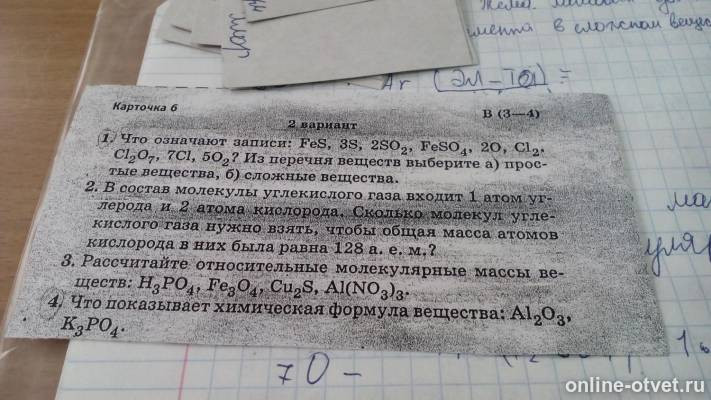 Тема.
в сложном
Ar (Эл-та) =
Карточка 6
В (3—4)
2 вариант
1. Что означают записи: FeS, 3S, 2SO₂, FeSO₄, 2O, Cl₂,
Cl₂O₇, 7Cl, 5O₂? Из перечня веществ выберите а) прос-
тые вещества, б) сложные вещества.
2. В состав молекулы углекислого газа входит 1 атом уг-
лерода и 2 атома кислорода. Сколько молекул угле-
кислого газа нужно взять, чтобы общая масса атомов
кислорода в них была равна 128 а. е. м.?
3. Рассчитайте относительные молекулярные массы ве-
ществ: H₃PO₄, Fe₃O₄, Cu₂S, Al(NO₃)₃.
4. Что показывает химическая формула вещества: Al₂O₃,
K₃PO₄.
7O –
online-otvet.ru